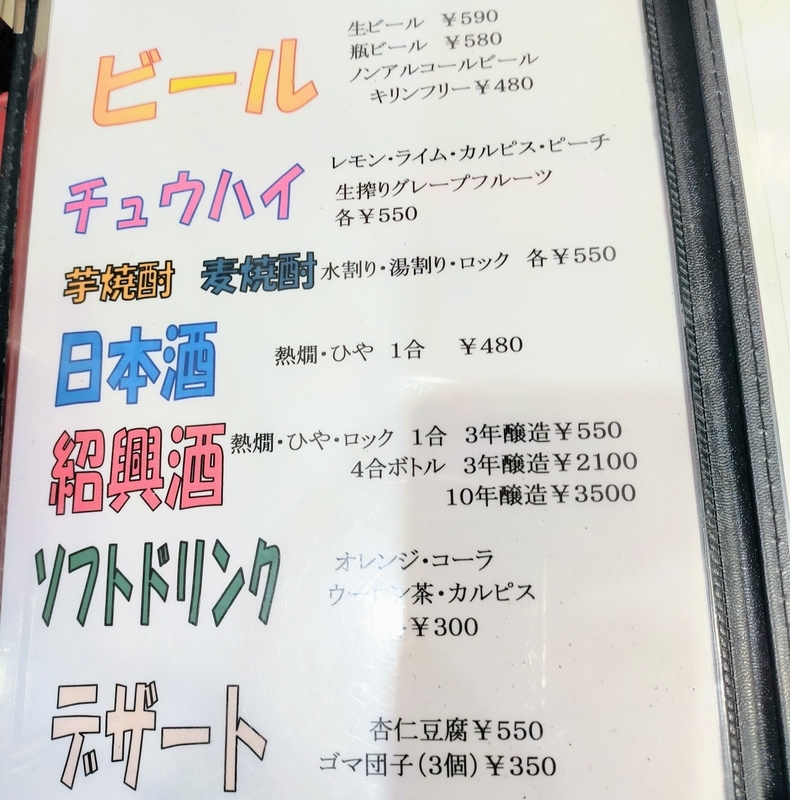 ビール
生ビール ￥590
瓶ビール ￥580
ノンアルコールビール
キリンフリー￥480
チュウハイ
レモン・ライム・カルピス・ピーチ
生搾りグレープフルーツ
各￥550
芋焼酎 麦焼酎 水割り・湯割り・ロック 各￥550
日本酒
熱燗・ひや 1合 ￥480
紹興酒
熱燗・ひや・ロック 1合 3年醸造￥550
4合ボトル 3年醸造￥2100
10年醸造￥3500
ソフトドリンク
オレンジ・コーラ
ウーロン茶・カルピス
￥300
デザート
杏仁豆腐￥550
ゴマ団子(3個)￥350